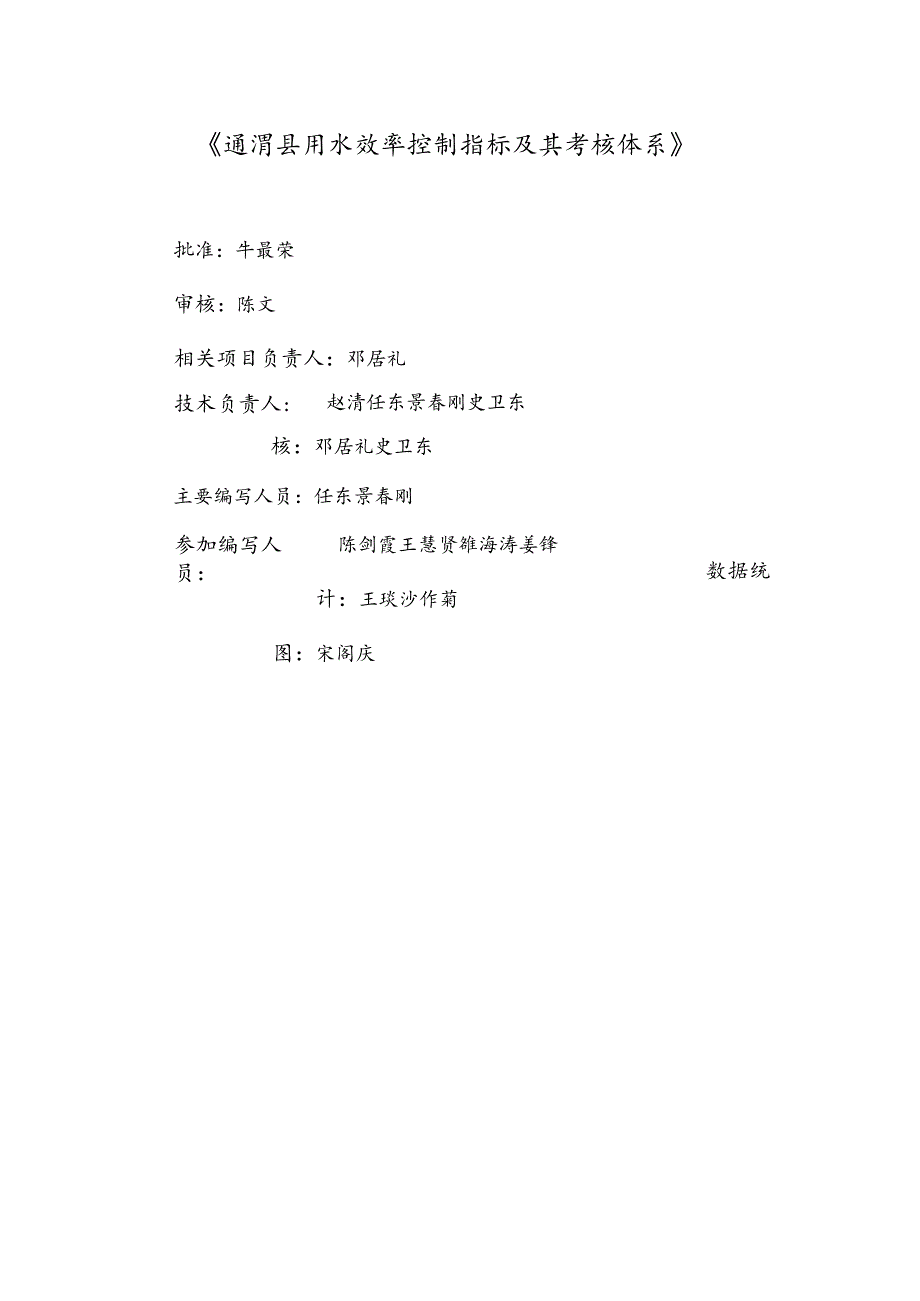 《通渭县用水效率控制指标及其考核体系》
批准：牛最荣
审核：陈文
相关项目负责人：邓居礼
技术负责人： 赵清任东景春刚史卫东
核：邓居礼史卫东
主要编写人员：任东景春刚
参加编写人 陈剑霞王慧贤雒海涛姜锋
员：
数据统
计：王琰沙作菊
图：宋阁庆